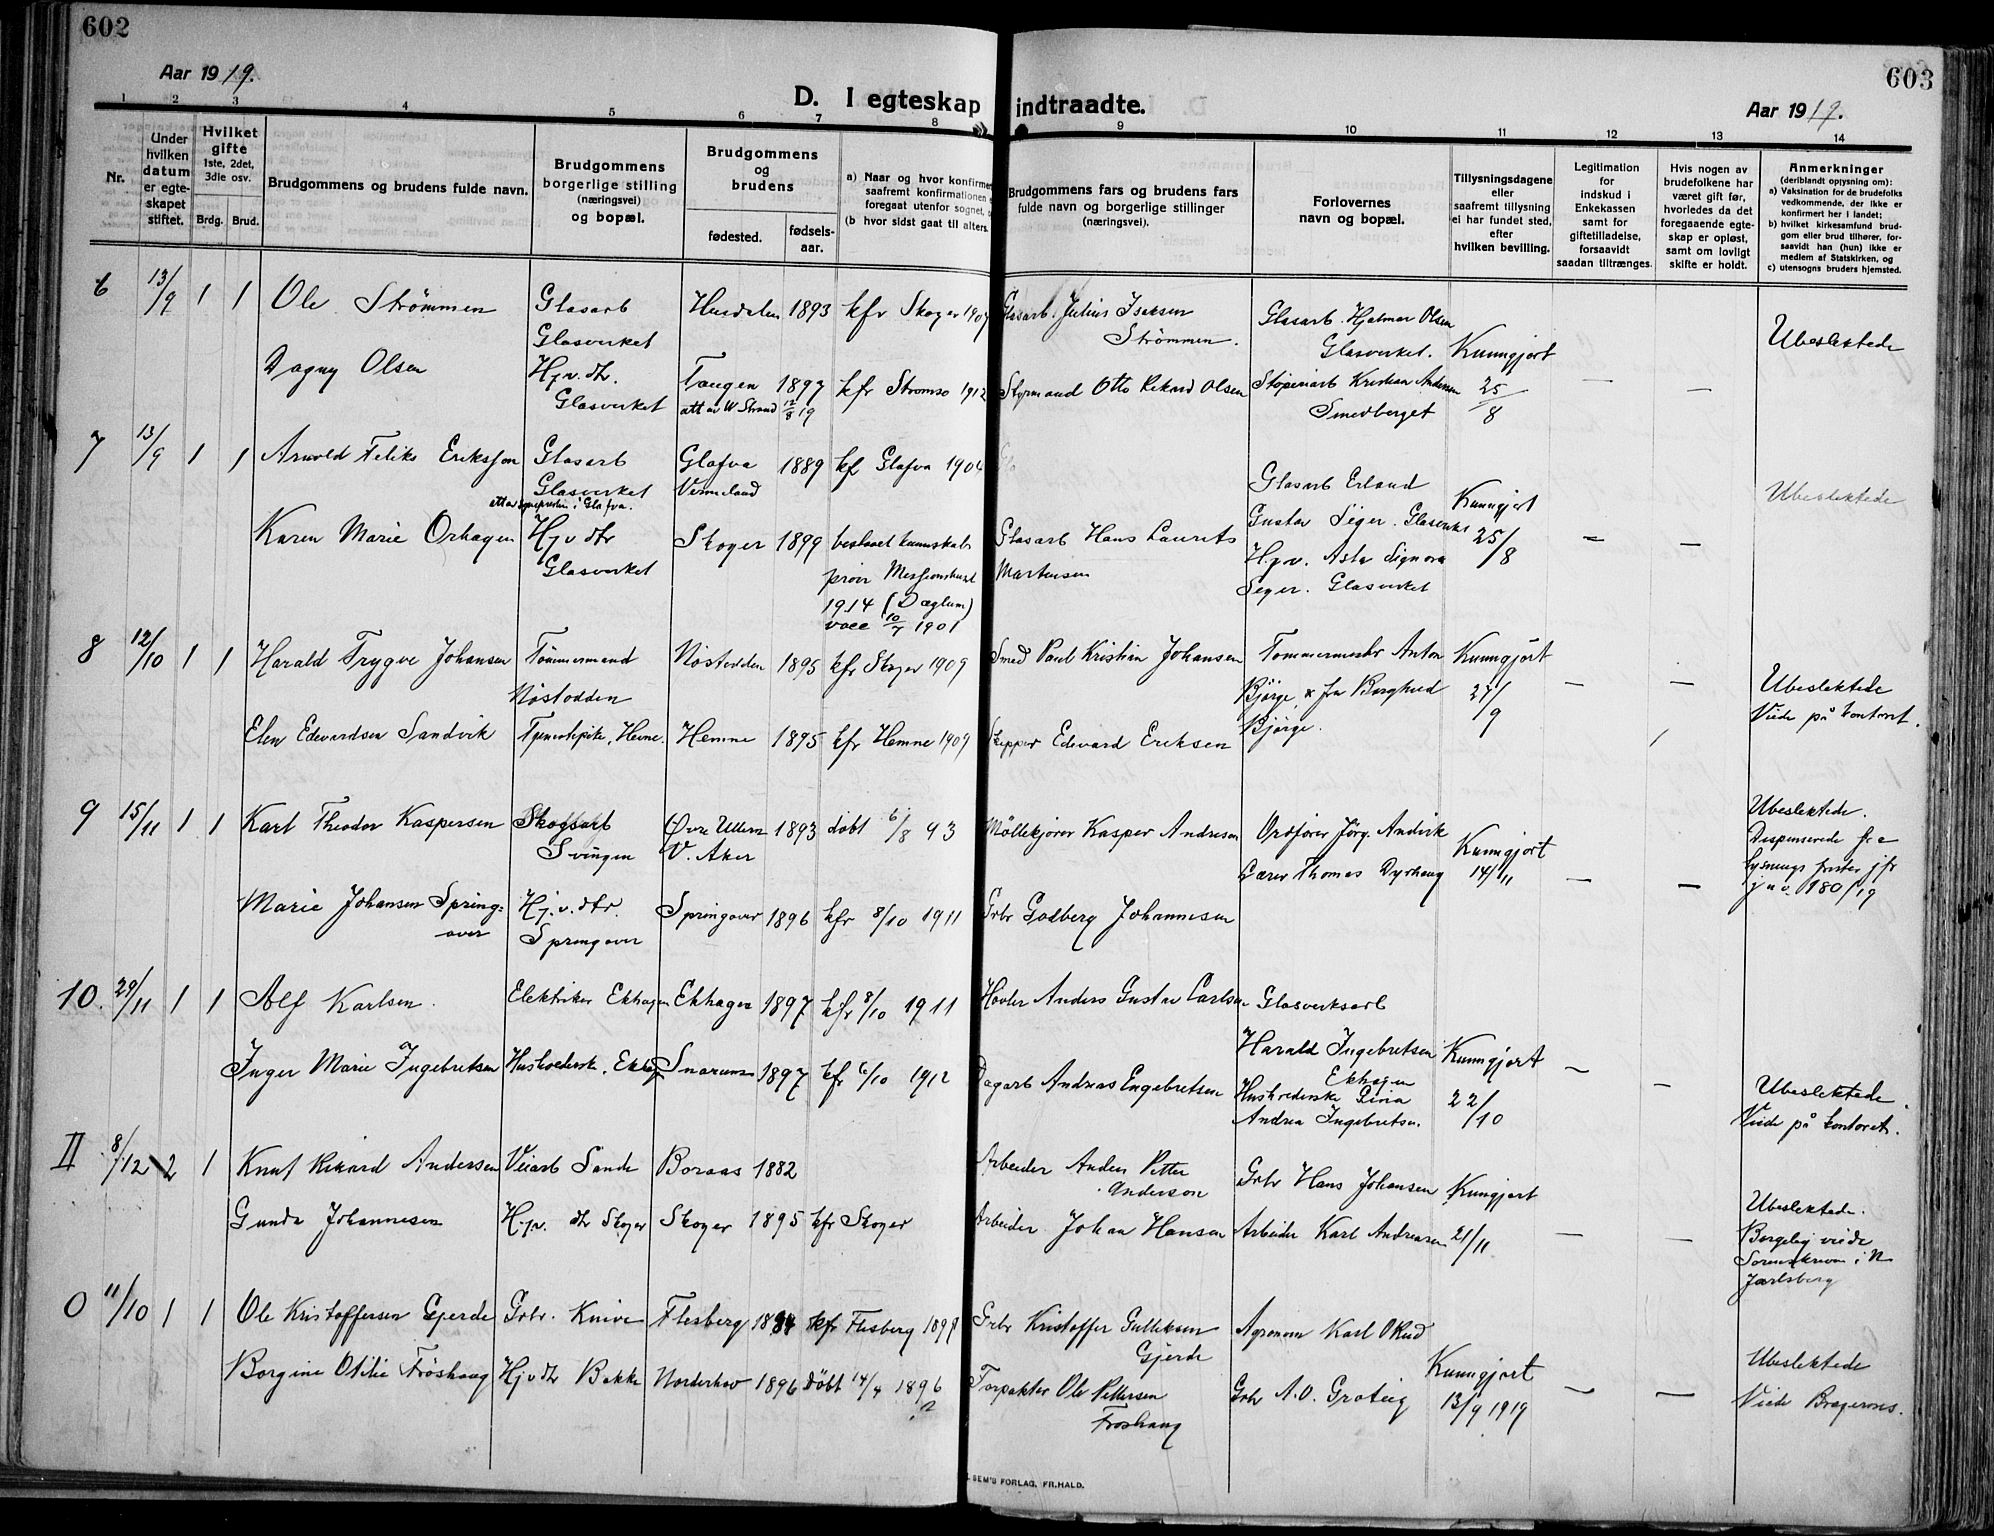 602
Aar 1919.
D. I egteskap indtraadte.
Aar 1919.
603
1 2 3 4 5 6 7 8 9 10 11 12 13 14
Nr.
Under hvilken datum er egteskapet stiftet.
Hvilket gifte
1ste, 2det, 3die osv.
Brdg. Brud.
Brudgommens og brudens fulde navn.
Brudgommens borgerlige stilling (næringsvei) og bopæl.
Brudgommens og brudens
fødested. fødselsaar.
a) Naar og hvor konfirmer
saafremt konfirmationen
foregaat utenfor sognet,
(b hvor sidst gaat til alters.
Brudgommens fars og brudens fars
fulde navn og borgerlige stillinger
(næringsvei).
Forlovernes
navn og bopæl.
Tillysningsdagene
eller
saafremt tillysning
ei har fundet sted,
efter
hvilken bevilling.
Legitimation
for
indskud i
Enkekassen
samt for
giftetilladelse,
forsaavidt
saadan tiltrænges.
Hvis nogen av
brudefolkene har
været gift før,
hvorledes da det
foregaaende egte-
skap er opløst,
samt om lovligt
skifte er holdt.
Anmerkninger
(deriblandt opjysning om):
a) Vaksination for de brudefolks
vedkommende, der ikke er
konfirmert her i landet;
b) hvilket kirkesamfund brud-
gom eller brud tilhører, for-
saavidt han (hun) ikke er
medlem af Statskirken, og
c) utensogns bruders hjemsted.
6 13/9 1 1 Ole Strømmen Glasarb Glasverket Husdalen 1893 kfr Skoger 1907 Glasarb. Julius Isaksen Strømmen. Glasarb. Hjalmar Olsen Glasverket. Kunngjort 25/8 — — Ubeslektede
Dagny Olsen Hj.v. dtr. Glasverket Tangen 1897 att av W Strand 12/8 19 kfr Strømsø 1912 Styrmand Otto Rikard Olsen Støperiarb Kristian Andersen Smedberget
7 13/9 1 1 Arnold Feliks Eriksson Glasarb Glasverket Glafva Vermeland 1889 kf Glafva 1904 Glasarb Erland Gustav Seger. Glasverket Kunngjort 25/8 — — Ubeslektede
att av sogneprestin i Glafva.
Karen Marie Orhagen Hj.v dtr Glasverket Skoger 1899 bestaaet kunnskabsprøve Missionshuset 1914 (Døglum) vacc 10/7 1901 Glasarb Hans Laurits Martensen Hjv. Asta Signora Seger. Glasverket
8 12/10 1 1 Harald Trygve Johansen Tømmermand Nøstodden Nøstodden 1895 kfr Skoger 1909 Smed Paul Kristian Johansen Tømmermester Anton Bjørge, & fru Borghild Bjørge. Kunngjort 27/9 — — Ubeslektede Viede på kontoret.
Elen Edevardsen Sandvik Hevne. Hemne 1895 kfr Hemne 1909 Skipper Edevard Eriksen
9 15/11 1 1 Karl Theodor Kaspersen Skogsarb Svingen Øvre Ullern V. Aker 1893 døbt 6/8 93 Møllekjører Kasper Andresen Ordfører Jørg. Andvik Kunngjort 14/11 — — Ubeslektede. Dispenserede fra lysnings frister jfr jnv. 180/19
Marie Johansen Springover Hj.v.dtr. Springover Springover 1896 kfr 8/10 1911 Grbr Godberg Johannesen Lærer Thomas Dyrhaug
10. 29/11 1 1 Alf Karlsen. Elektriker Ekhagen Ekhagen 1897 kfr 8/10 1911 Høvler Anders Gustav Carlsen Glasverksarb Harald Ingebretsen Ekhagen Kunngjort 22/10 — — Ubeslektede. Viede på kontoret.
Inger Marie Ingebretsen Husholderske, Ekhag Snarum 1897 kfr 6/10 1912 Dagarb Andreas Engebretsen Husholderske Andrea Ingebretsen.
II 8/12 2 1 Knut Rikard Andersen Veiarb Sande Boraas 1882 Arbeider Anders Petter Anderson Grbr Hans Johansen Kungjort 21/11 — — Ubeslektede. Borgelig viede Sorenskriveren i N Jarlsberg
Gunda Johannesen Hjv. dtr Skoger Skoger 1895 kfr Skoger Arbeider Johan Hansen Arbeider Karl Andreasen
0 11/10 1 1 Ole Kristoffersen Gjerde Grbr. Knive Flesberg 1884 kfr Flesberg 1898 Grbr Kristoffer Gulliksen Gjerde Agronom Karl Økud Kunngjort 13/9 1919 — — Ubeslektede Viede Bragernes.
Borgine Otilie Frøshaug Hjv dtr Bakke Norderhov 1896 Døbt 14/4 1896 ? Forpakter Ole Pettersen Frøshaug Grbr A.O. Groteig
SEM'S FORLAG, FR.HALD.